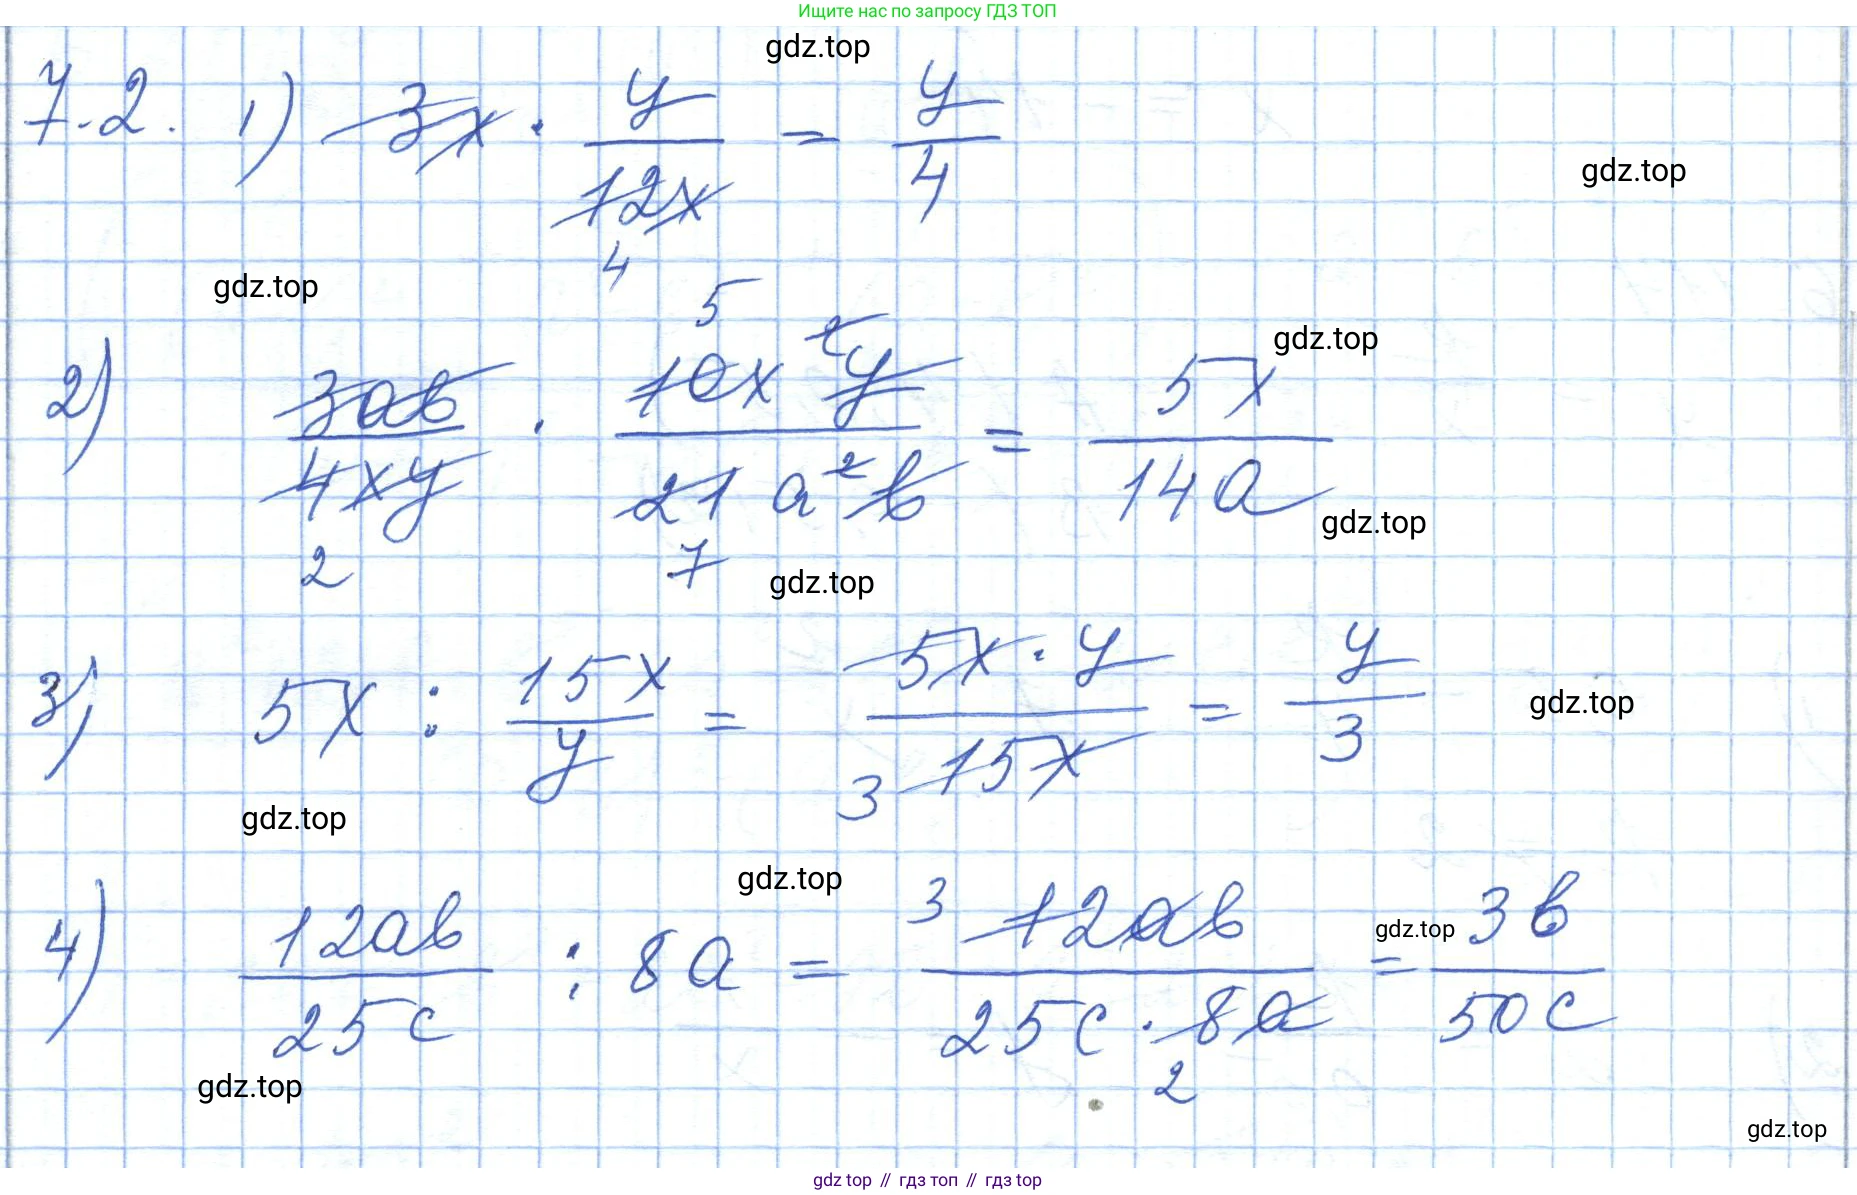 Ищите нас по запросу ГДЗ ТОП
gdz.top
7.2. 1) 3x · y/12x = y/4
4
gdz.top
gdz.top
5
gdz.top
2) 3ab/4xy · 10x²y/21a²b = 5x/14a
2 7
gdz.top
gdz.top
3) 5x : 15x/y = 5x · y/15x = y/3
3
gdz.top
gdz.top
gdz.top
4) 12ab/25c : 8a = 12ab/25c · 8a = 3b/50c
3
2
gdz.top
gdz.top
gdz.top
gdz top // гдз топ // гдз top